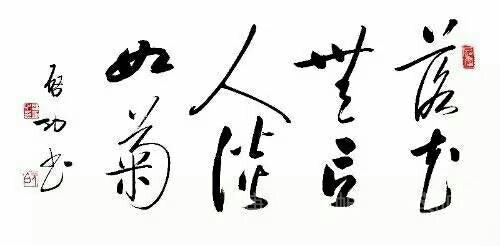 落花
無言
人淡
如菊
启功书